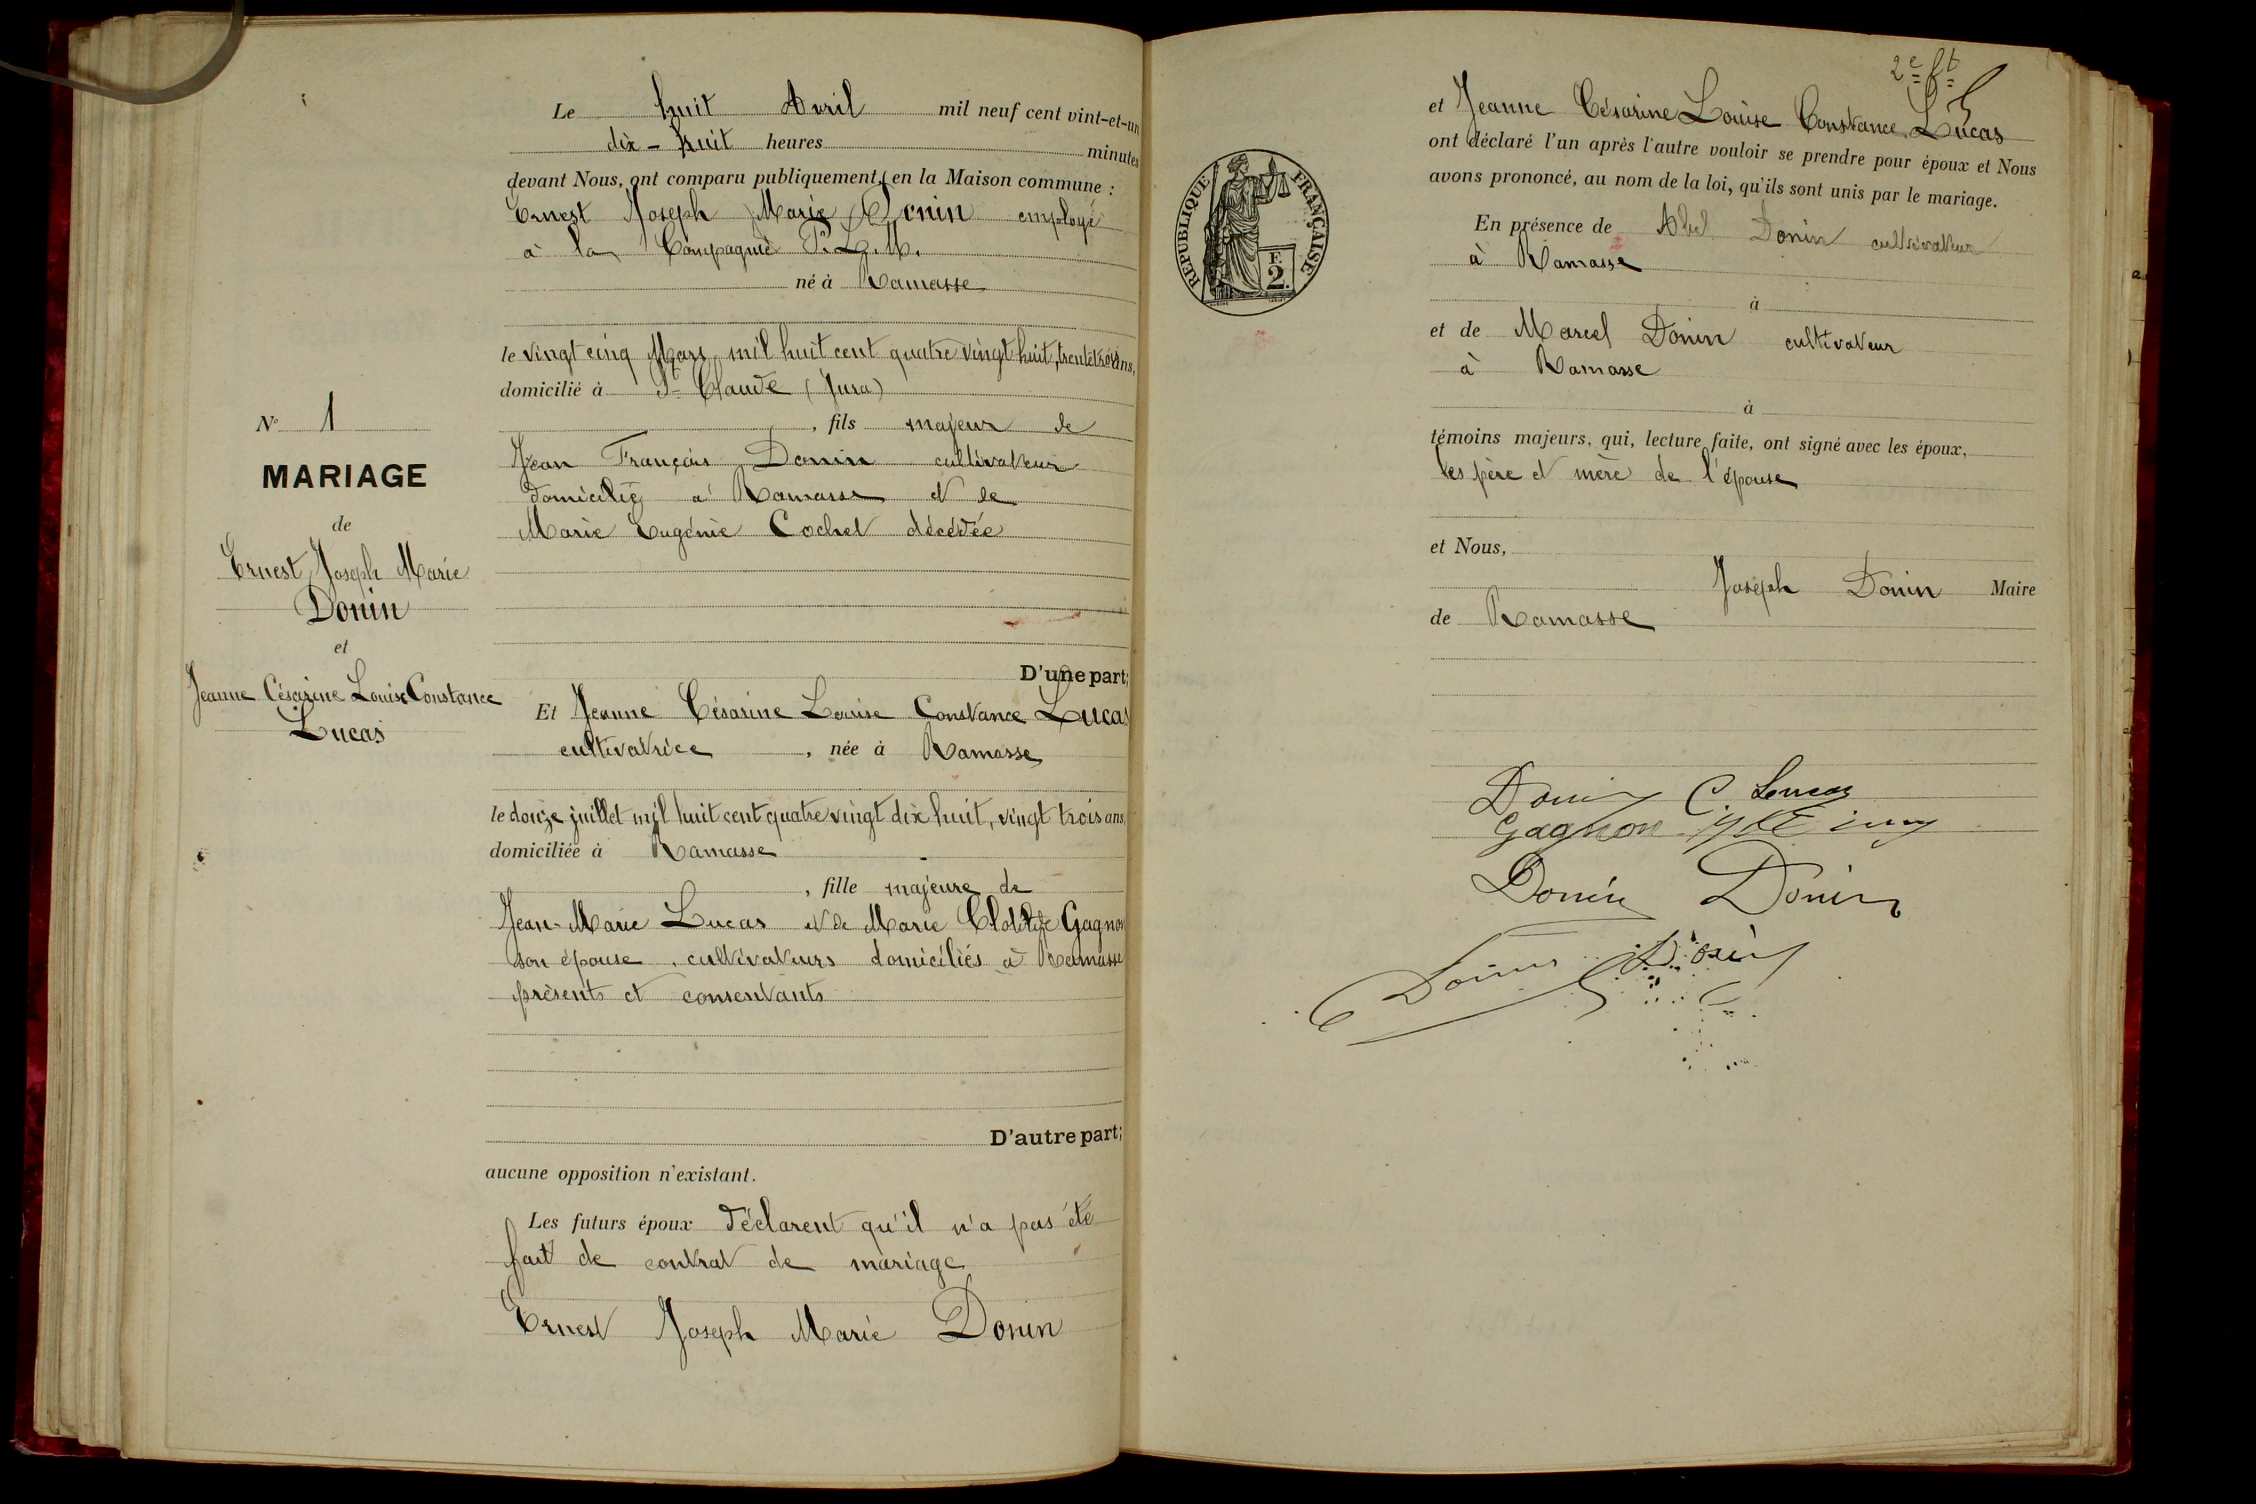 Le huit Avril mil neuf cent vint-et-un
dix-huit heures minutes
devant Nous, ont comparu publiquement en la Maison commune :
Ernest Joseph Marie Donin employé
à la Compagnie P.L.M.
né à Ramasse
le vingt cinq Mars mil huit cent quatre vingt huit, trente trois ans,
domicilié à St Claude (Jura)
, fils majeur de
Jean François Donin cultivateur
domicilié à Ramasse et de
Marie Eugénie Cochet décédée
D'une part;
N° 1
MARIAGE
de
Ernest Joseph Marie
Donin
et
Jeanne Césarine Louise Constance
Lucas
Et Jeanne Césarine Louise Constance Lucas
cultivatrice , née à Ramasse
le douze juillet mil huit cent quatre vingt dix huit, vingt trois ans,
domiciliée à Ramasse
, fille majeure de
Jean-Marie Lucas et de Marie Clotilde Gagnon
son épouse, cultivateurs domiciliés à Ramasse
présents et consentants
D'autre part;
aucune opposition n'existant.
Les futurs époux déclarent qu'il n'a pas été
fait de contrat de mariage
Ernest Joseph Marie Donin
2e ft
et Jeanne Césarine Louise Constance Lucas
ont déclaré l'un après l'autre vouloir se prendre pour époux et Nous
avons prononcé, au nom de la loi, qu'ils sont unis par le mariage.
REPUBLIQUE FRANÇAISE
F. 2.
En présence de Abel Donin cultivateur
à Ramasse
à
et de Marcel Donin cultivateur
à Ramasse
à
témoins majeurs, qui, lecture faite, ont signé avec les époux,
les père et mère de l'épouse
et Nous,
Joseph Donin Maire
de Ramasse
Donin C. Lucas
Gagnon
Donin Donin
Donin Donin